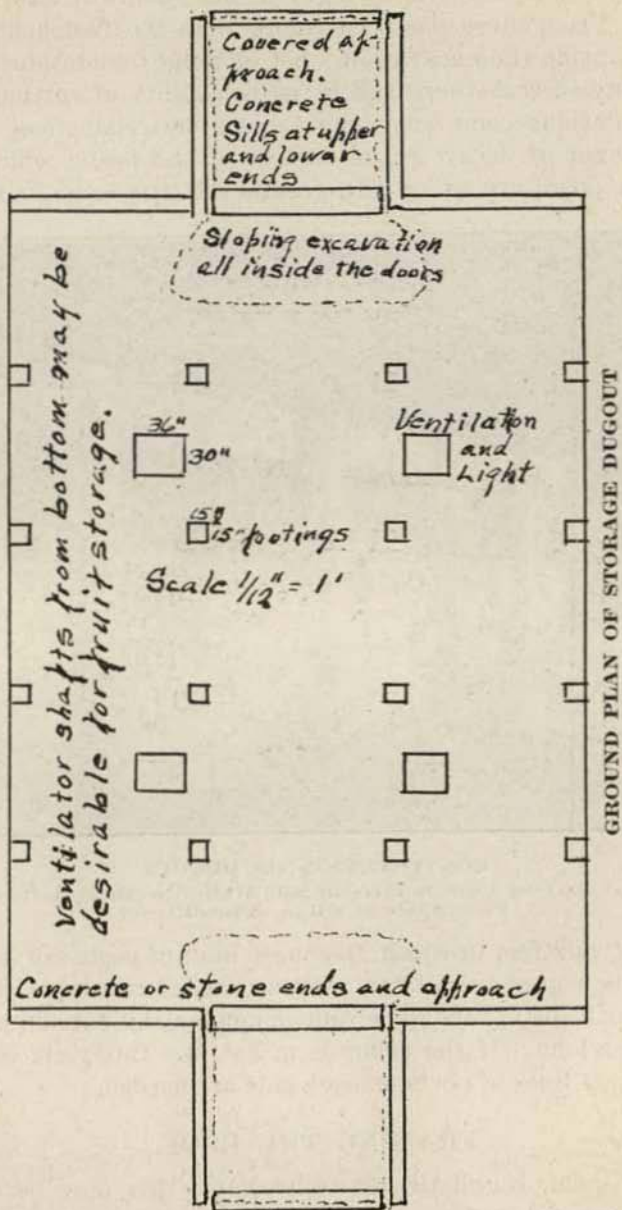 Covered ap-
proach.
Concrete
Sills at upper
and lowar
ends
Sloping excavation
all inside the doors
Ventilator shafts from bottom may be
desirable for fruit storage.
36"
30"
Ventilation
and
Light
15"
15-footings
Scale 1/12" = 1'
Concrete or stone ends and approach
GROUND PLAN OF STORAGE DUGOUT